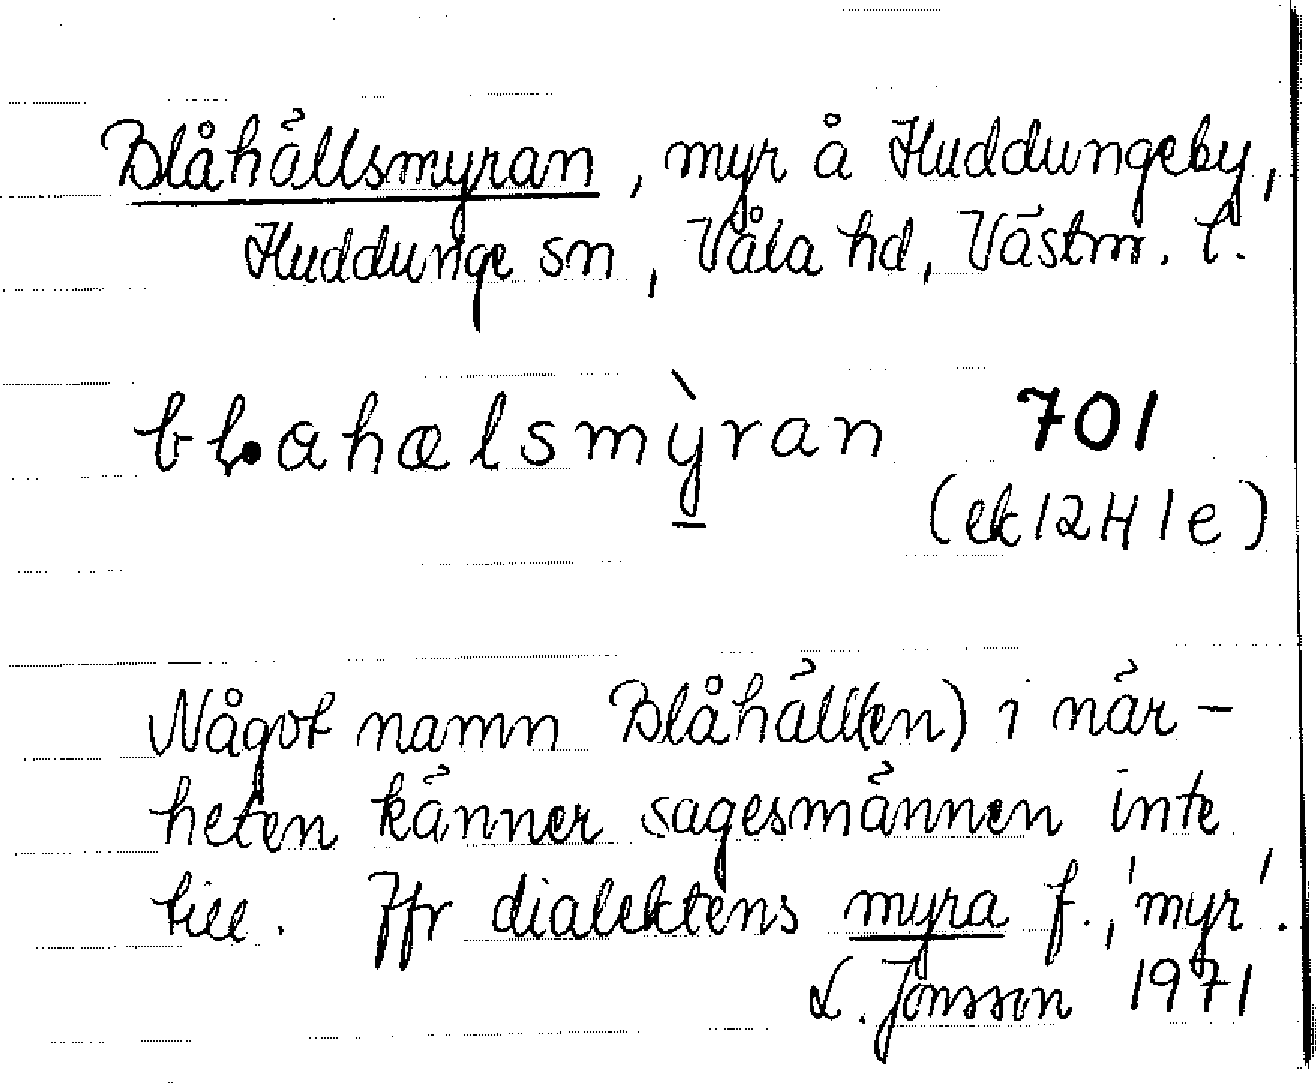 Blåhällsmyran, myr å Huddungeby,
Huddunge sn, Våla hd, Västm. l.
701
(ek 12 H 1 e)
Något namn Blåhäll(en) i när-
heten känner sagesmännen inte
till. Jfr dialektens myra f., 'myr'.
L. Jonsson 1971